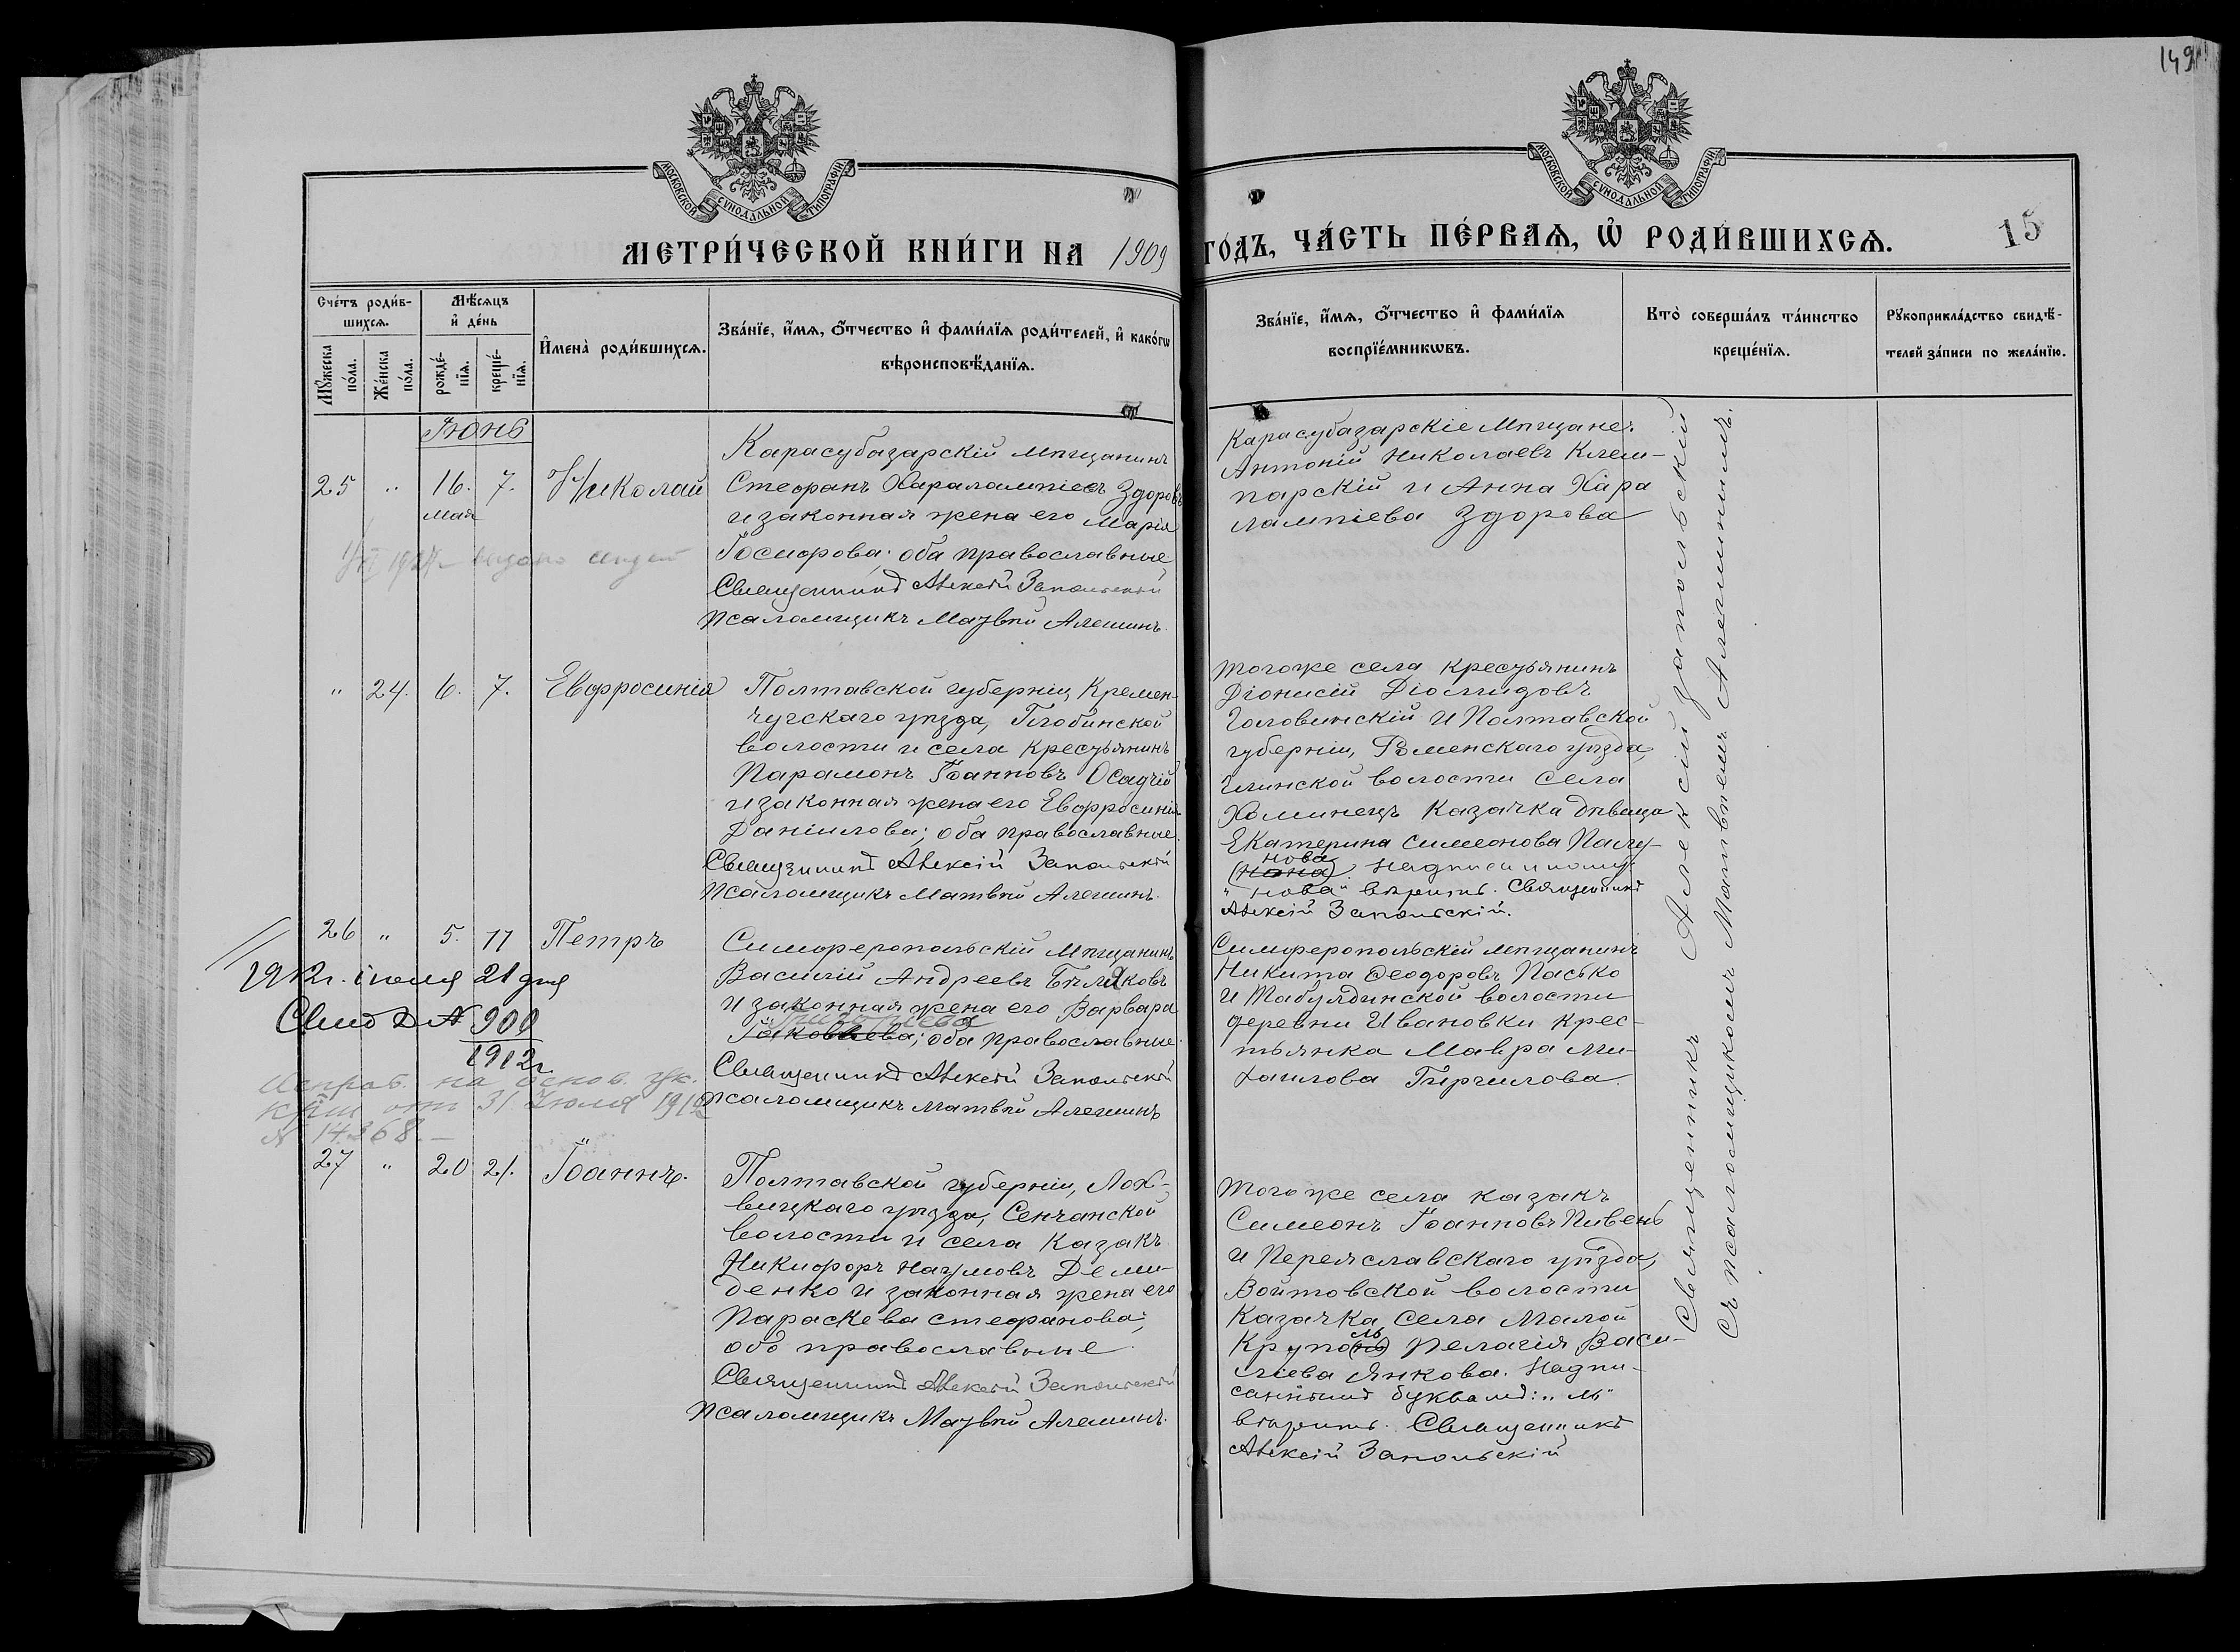 149
МОСКОВСКОЙ СѴНОДАЛЬНОЙ ТИПОГРАФІИ
МОСКОВСКОЙ СѴНОДАЛЬНОЙ ТИПОГРАФІИ
МЕТРИ́ЧЕСКОЙ КНИ́ГИ НА 1909
ГО́ДЪ, ЧА́СТЬ ПЕ́РВАѦ, Ѡ҆ РОДИ́ВШИХСѦ. 15
Сче́тъ роди́в-
шихсѧ.
Мꙋ́жеска по́ла.
Же́нска по́ла.
Мѣ́сѧцъ и҆ де́нь
рожде́-
нїѧ.
креще́-
нїѧ.
И҆мена̀ роди́вшихсѧ.
Зва́нїе, и҆́мѧ, ѻ҆́тчество и҆ фами́лїѧ роди́телей, и҆ како́гѡ
вѣроисповѣ́данїѧ.
Зва́нїе, и҆́мѧ, ѻ҆́тчество и҆ фами́лїѧ
воспрїе́мникѡвъ.
Кто̀ соверша́лъ та́инство
креще́нїѧ.
Рꙋкоприкла́дство свидѣ́-
телей за́писи по жела́нїю.
Іюнь
25 " 16. 7. Николай
мая
Карасубазарскій мѣщанинъ
Стефанъ Харалампіевъ Здоровъ
и законная жена его Марія
Іосифова; оба православные
Священникъ Алексій Запольскій
Псаломщикъ Матвѣй Алешинъ.
Карасубазарскіе мѣщане:
Антоній Николаевъ Клем-
парскій и Анна Хара
лампіева Здорова
" 24. 6. 7. Евфросинія
Полтавской губерніи, Кремен-
чугскаго уѣзда, Глобинской
волости и села крестьянинъ
Парамонъ Іоанновъ Осадчій
и законная жена его Евфросинія
Даніилова; оба православные.
Священникъ Алексій Запольскій
Псаломщикъ Матвѣй Алешинъ.
Тогоже села крестьянинъ
Діонисій Діомидовъ
Головинскій и Полтавской
губерніи, Роменскаго уѣзда,
Глинской волости села
Хоминецъ казачка дѣвица
Екатерина Симеонова Пагу-
нова
(нона). Надписанному
"нова" вѣрить. Священникъ
Алексій Запольскій.
26 " 5. 11 Петръ
1912 г. іюля 21 дня
Свид. № 900
1912 г.
Исправ. на основ. ук.
от 31 Іюля 191
№ 14368.—
Симферопольскій мѣщанинъ
Василій Андреевъ Бѣляковъ
и законная жена его Варвара
Яковлева; оба православные.
Священникъ Алексій Запольскій
Псаломщикъ Матвѣй Алешинъ
Симферопольскій мѣщанинъ
Никита Ѳеодоровъ Пасько
и Табулдинской волости
деревни Ивановки крес-
тьянка Мавра Ми-
хаилова Гиргилова.
27 " 20 21. Іоаннъ.
Полтавской губерніи, Лох-
вицкаго уѣзда, Сенчанской
волости и села казакъ
Никифоръ Наумовъ Деми-
денко и законная жена его
Параскева Стефанова;
оба православные
Священникъ Алексій Запольскій
Псаломщикъ Матвѣй Алешинъ.
Того же села казакъ
Симеонъ Іоанновъ Пивень
и Переяславскаго уѣзда,
Войтовской волости
казачка села Малой
Крупо(нь) ль Пелагія Васи-
ліева Янкова. Надпи-
саннымъ буквамъ: "ль"
вѣрить. Священникъ
Алексій Запольскій
Священникъ Алексій Запольскій
Съ псаломщикомъ Матвѣемъ Алешинымъ.